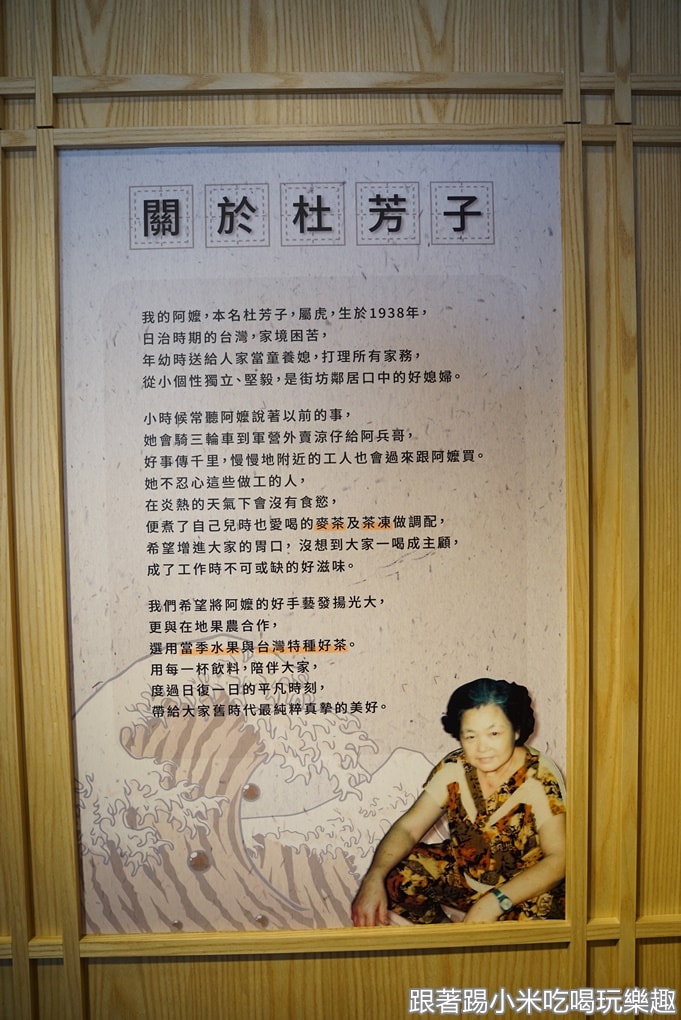 關於杜芳子
我的阿嬤，本名杜芳子，屬虎，生於1938年，
日治時期的台灣，家境困苦，
年幼時送給人家當童養媳，打理所有家務，
從小個性獨立、堅毅，是街坊鄰居口中的好媳婦。
小時候常聽阿嬤說著以前的事，
她會騎三輪車到軍營外賣涼仔給阿兵哥，
好事傳千里，慢慢地附近的工人也會過來跟阿嬤買。
她不忍心這些做工的人，
在炎熱的天氣下會沒有食慾，
便煮了自己兒時也愛喝的麥茶及茶凍做調配，
希望增進大家的胃口，沒想到大家一喝成主顧，
成了工作時不可或缺的好滋味。
我們希望將阿嬤的好手藝發揚光大，
更與在地果農合作，
選用當季水果與台灣特種好茶。
用每一杯飲料，陪伴大家，
度過日復一日的平凡時刻，
帶給大家舊時代最純粹真摯的美好。
跟著踢小米吃喝玩樂趣